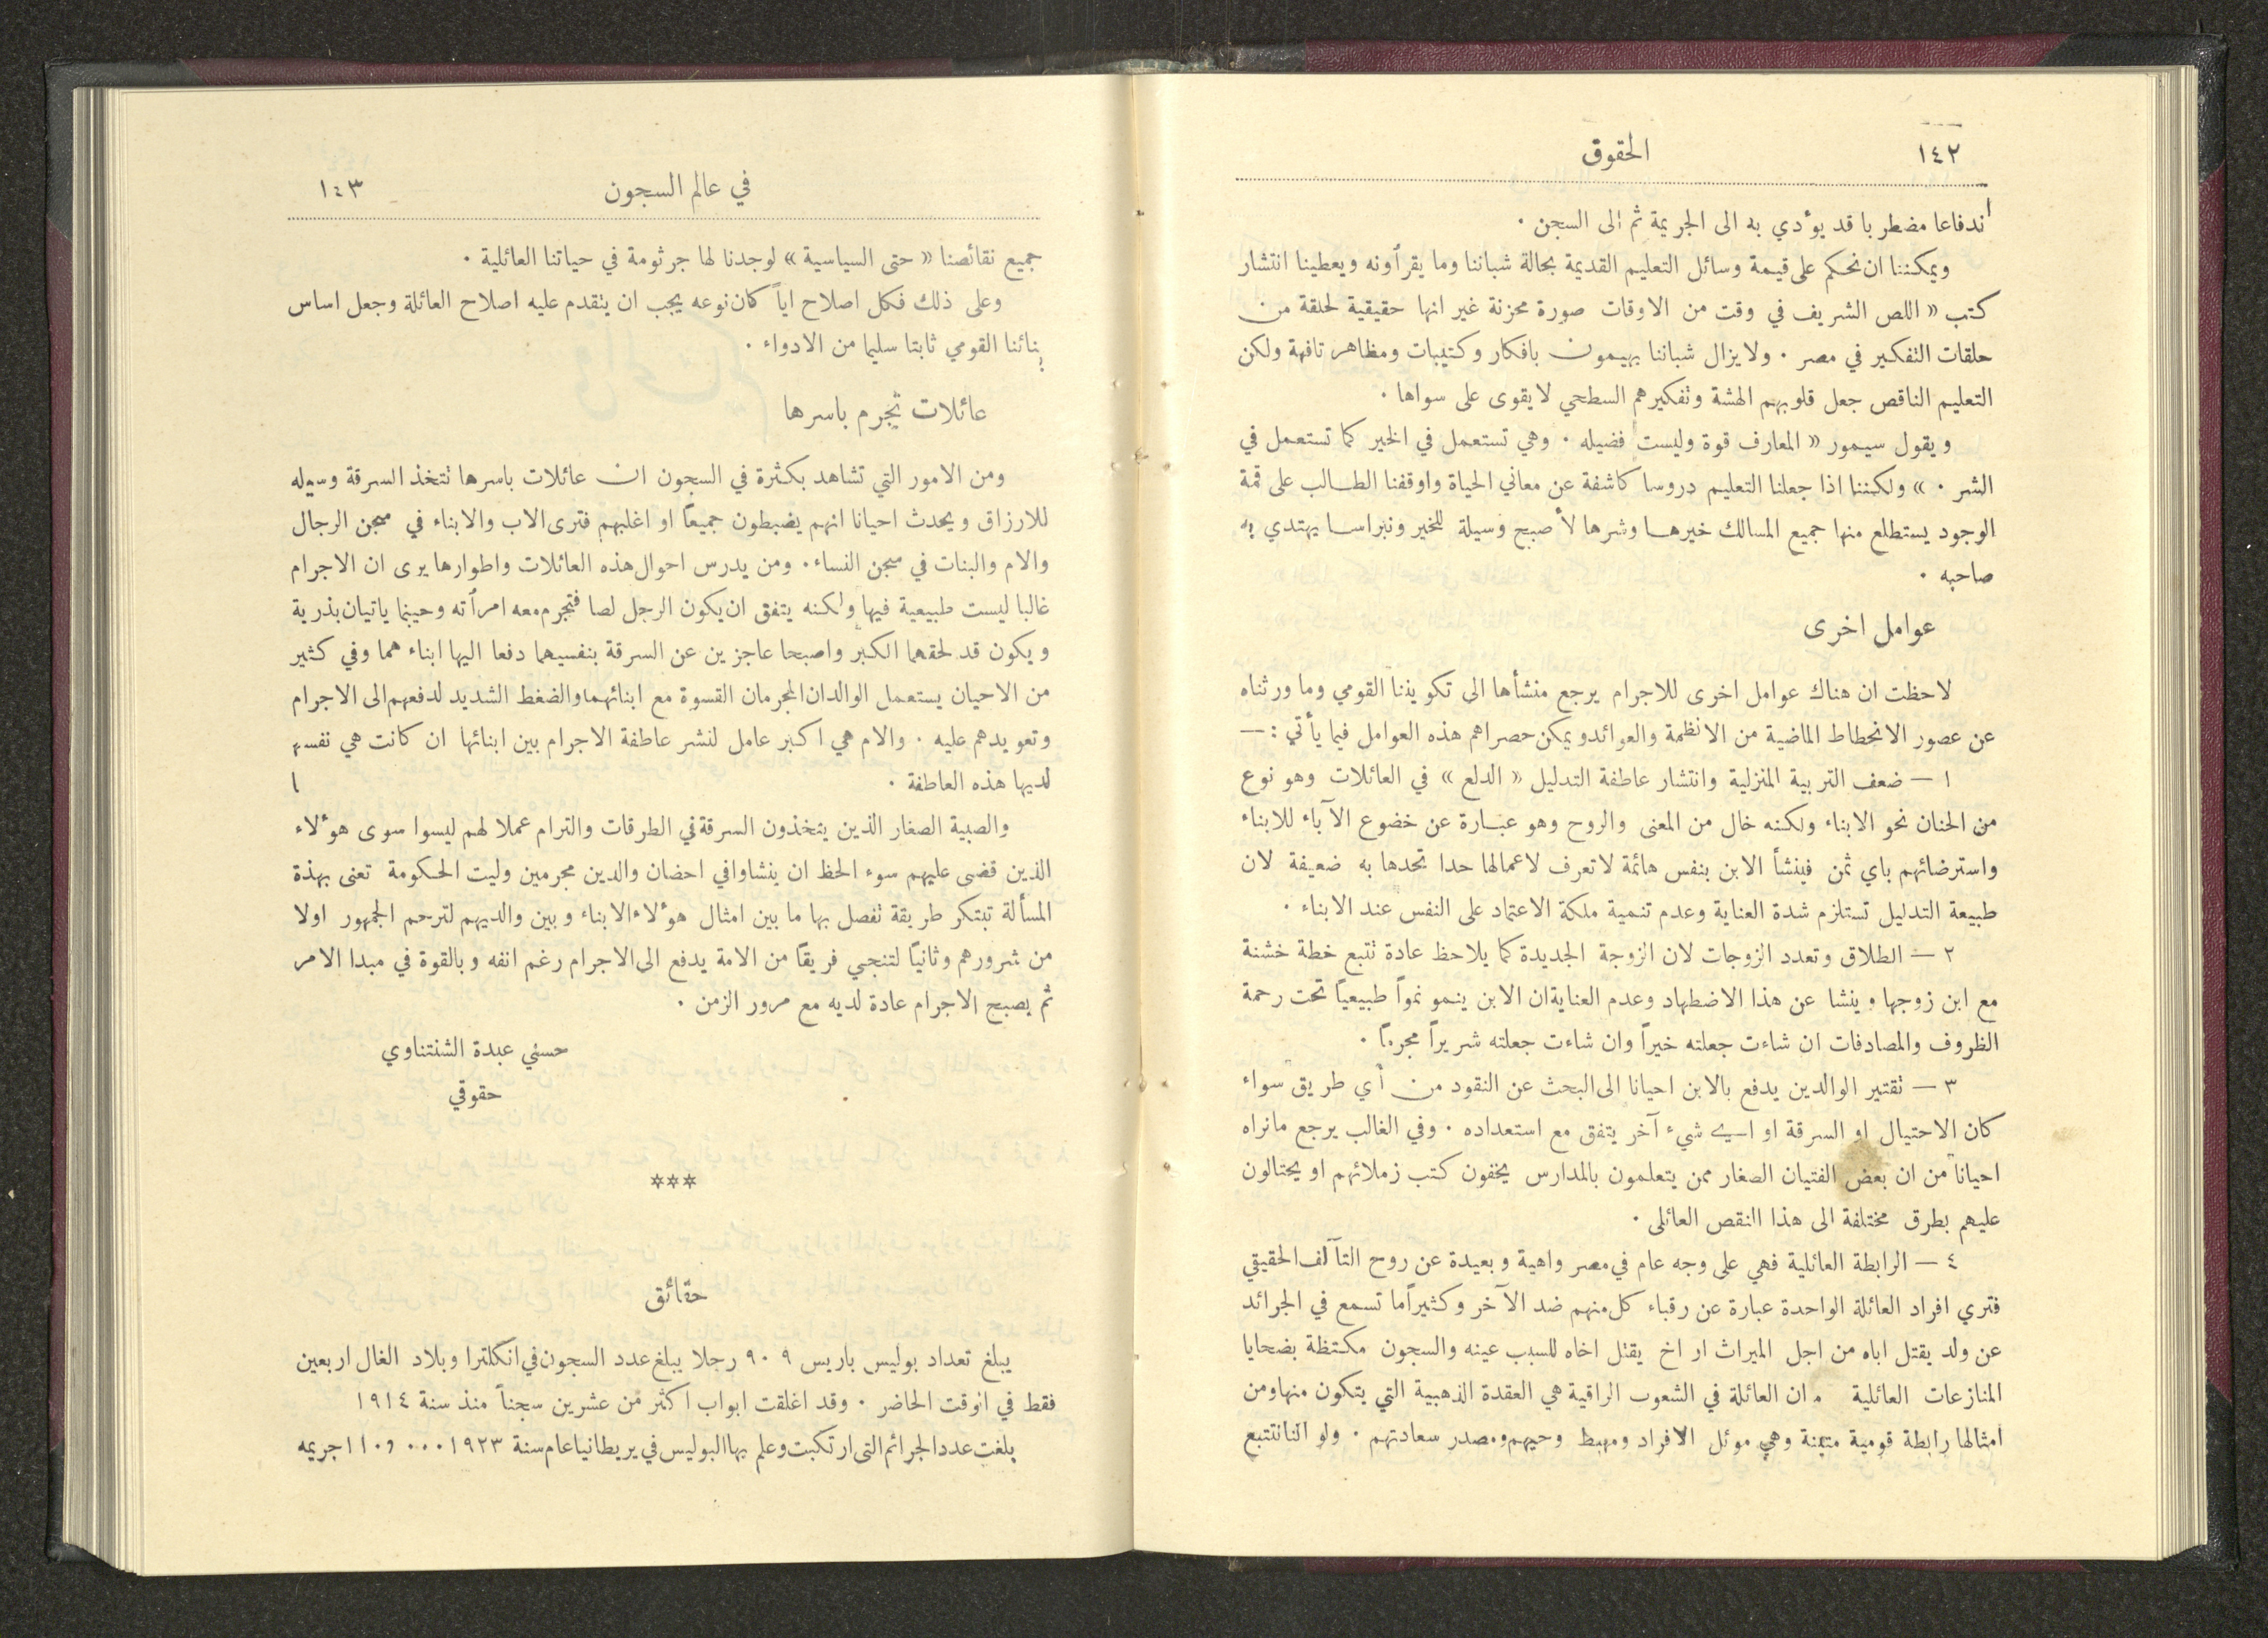 ١٤٢
الحقوق
اندفاعا مضطربا قد يؤدي به الى الجريمة ثم الى السجن .
ويمكننا ان نحكم على قيمة وسائل التعليم القديمة بحالة شباننا وما يقرأونه ويعطينا انتشار
كتب « اللص الشريف في وقت من الاوقات صورة محزنة غير انها حقيقية لحلقة من
حلقات التفكير في مصر . ولا يزال شباننا يهيمون بافكار وكتيبات ومظاهر تافهة ولكن
التعليم الناقص جعل قلوبهم الهشة وتفكيرهم السطحي لا يقوى على سواها .
ويقول سيمور « المعارف قوة وليست فضيله . وهي تستعمل في الخير كما تستعمل في
الشر . » ولكننا اذا جعلنا التعليم دروسا كاشفة عن معاني الحياة واوقفنا الطالب على قمة
الوجود يستطلع منها جميع المسالك خيرها وشرها لأصبح وسيلة للخير ونبراسا يهتدي به
صاحبه .
عوامل اخرى
لاحظت ان هناك عوامل اخرى للاجرام يرجع منشأها الى تكويننا القومي وما ورثناه
عن عصور الانحطاط الماضية من الانظمة والعوائد ويمكن حصر اهم هذه العوامل فيما يأتي : —
١ — ضعف التربية المنزلية وانتشار عاطفة التدليل « الدلع » في العائلات وهو نوع
من الحنان نحو الابناء ولكنه خال من المعنى والروح وهو عبارة عن خضوع الآباء للابناء
واسترضائهم باي ثمن فينشأ الابن بنفس هائمة لا تعرف لاعمالها حدا تحدها به ضعيفة لان
طبيعة التدليل تستلزم شدة العناية وعدم تنمية ملكة الاعتماد على النفس عند الابناء .
٢ — الطلاق وتعدد الزوجات لان الزوجة الجديدة كما يلاحظ عادة تتبع خطة خشنة
مع ابن زوجها وينشا عن هذا الاضطهاد وعدم العناية ان الابن ينمو نمواً طبيعياً تحت رحمة
الظروف والمصادفات ان شاءت جعلته خيراً وان شاءت جعلته شريراً مجرماً .
٣ — تقتير الوالدين يدفع بالابن احيانا الى البحث عن النقود من أي طريق سواء
كان الاحتيال او السرقة او اي شيء آخر يتفق مع استعداده . وفي الغالب يرجع مانراه
احياناً من ان بعض الفتيان الصغار ممن يتعلمون بالمدارس يخفون كتب زملائهم او يحتالون
عليهم بطرق مختلفة الى هذا النقص العائلى .
٤ — الرابطة العائلية فهي على وجه عام في مصر واهية وبعيدة عن روح التآلف الحقيقي
فتري افراد العائلة الواحدة عبارة عن رقباء كل منهم ضد الآخر وكثيراً ما تسمع في الجرائد
عن ولد يقتل اباه من اجل الميراث ار اخ يقتل اخاه للسبب عينه والسجون مكتظة بضحايا
المنازعات العائلية . ان العائلة في الشعوب الراقية هي العقدة الذهبية التي يتكون منها ومن
امثالها رابطة قومية متينة وهي موئل الافراد ومهبط وحيهم ومصدر سعادتهم . ولو اننا نتتبع
في عالم السجون
١٤٣
جميع نقائصنا « حتى السياسية » لوجدنا لها جرثومة في حياتنا العائلية .
وعلى ذلك فكل اصلاح اياً كان نوعه يجب ان يتقدم عليه اصلاح العائلة وجعل اساس
بنائنا القومي ثابتا سليما من الادواء .
عائلات تجرم باسرها
ومن الامور التي تشاهد بكثرة في السجون ان عائلات باسرها تتخذ السرقة وسيله
للارزاق ويحدث احيانا انهم يضبطون جميعاً او اغلبهم فترى الاب والابناء في سجن الرجال
والام والبنات في سجن النساء . ومن يدرس احوال هذه العائلات واطوارها يرى ان الاجرام
غالبا ليست طبيعية فيها ولكنه يتفق ان يكون الرجل لصا فتجرم معه امرأته وحينما ياتيان بذرية
ويكون قد لحقهما الكبر واصبحا عاجزين عن السرقة بنفسيهما دفعا اليها ابناءهما وفي كثير
من الاحيان يستعمل الوالدان المجرمان القسوة مع ابنائهما والضغط الشديد لدفعهم الى الاجرام
وتعويدهم عليه . والام هي اكبر عامل لنشر عاطفة الاجرام بين ابنائها ان كانت هي نفسها
لديها هذه العاطفة .
والصبية الصغار الذين يتخذون السرقة في الطرقات والترام عملا لهم ليسوا سوى هؤلاء
الذين قضى عليهم سوء الحظ ان ينشاوا في احضان والدين مجرمين وليت الحكومة تعنى بهذة
المسألة تبتكر طريقة تفصل بها ما بين امثال هؤلاء الابناء وبين والديهم لترحم الجمهور اولا
من شرورهم وثانياً لتنجي فريقاً من الامة يدفع الى الاجرام رغم انفه وبالقوة في مبدا الامر
ثم يصبح الاجرام عادة لديه مع مرور الزمن .
حسني عبدة الشنتناوي
حقوقي
***
حقائق
يبلغ تعداد بوليس باريس ٩٠٩ رجلا يبلغ عدد السجون في انكلترا وبلاد الغال اربعين
فقط في اوقت الحاضر . وقد اغلقت ابواب اكثر من عشرين سجناً منذ سنة ١٩١٤
بلغت عدد الجرائم التى ارتكبت وعلم بها البوليس في بريطانيا عام سنة ١٩٢٣ ١١٠,٠٠٠ جريمه